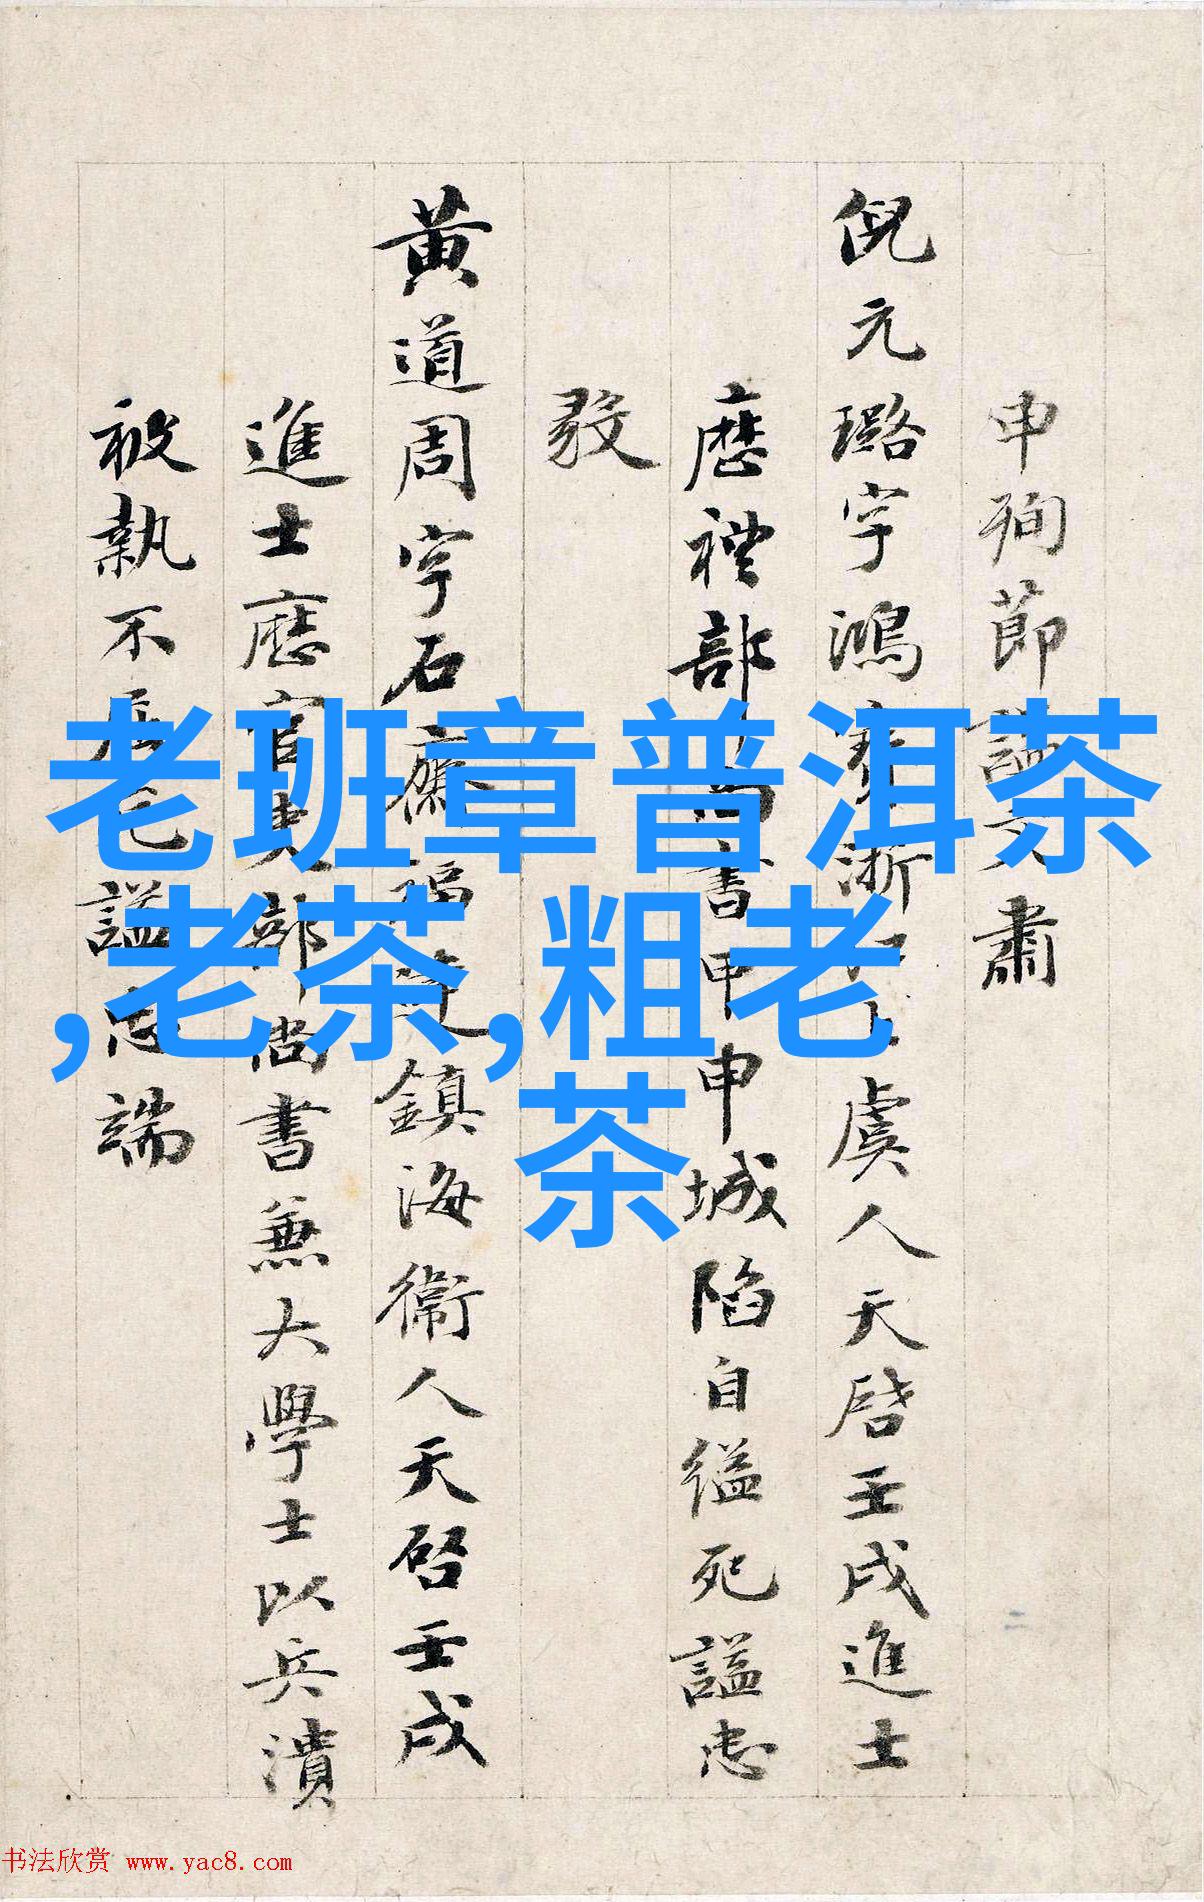 申殉節謚文肅
倪元璐字鴻寳浙江上虞人天啓壬戌進士
歷禮部尚書甲申城陷自縊死謚忠
毅
黄道周字石齋福建鎮海衞人天啓壬戌
進士歷官吏部尚書兼大學士以兵潰
被執不屈死謚忠端
老班章普洱茶
,老茶,粗老
茶
书法欣赏 www.yac8.com